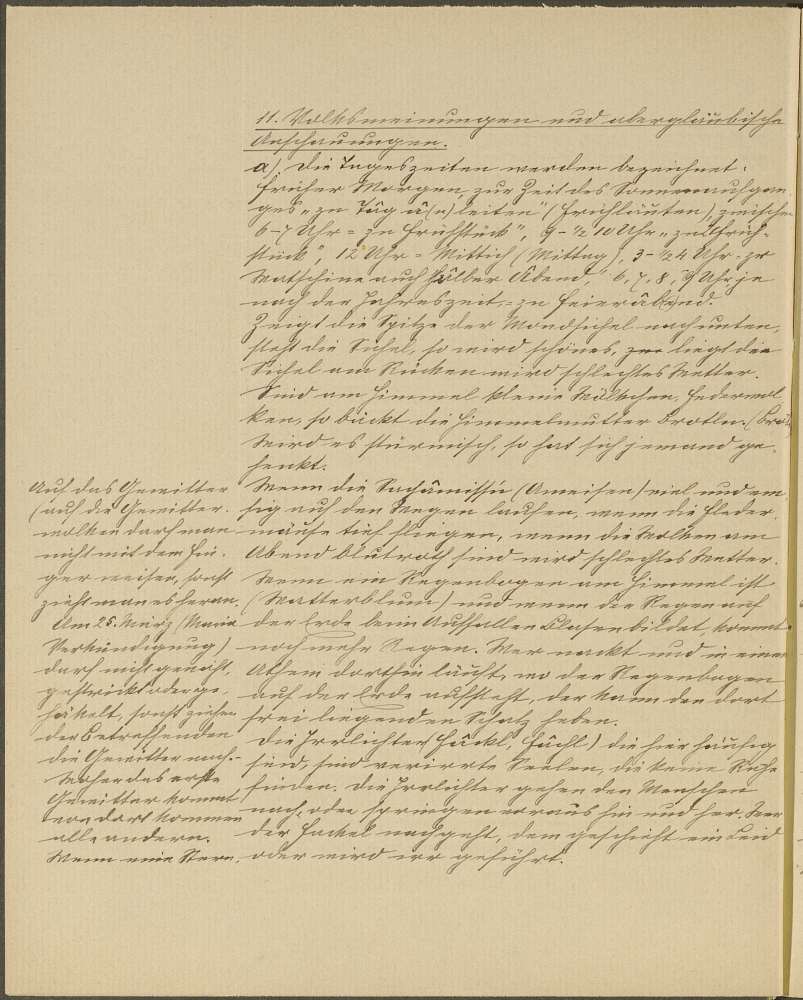 11. Volksmeinungen und abergläubische
Anschauungen.
a) Die Tageszeiten werden bezeichnet:
früher Morgen, zur Zeit des Sonnenaufgan-
ges „zu Tåg leiten" (Frühläuten), zwischen
6-7 Uhr = zu Frühstück", 9-½ 10 Uhr „zu
stück", 12 Uhr = Mittich (Mittag), 3-¼4 Uhr - zr
auch Abend", 6, 7, 8, 9 Uhr je
nach der Jahreszeit, = zu Feieråbend.
Zeigt die Spitze der Mondsichel nach unten,
steht die Sichel, so wird schönes, liegt die
Sichel am Rücken wird schlechtes Wetter.
Sind am Himmel kleine Wölkchen, Federwol-
ken, so bäckt die Himmelmutter Brotln.
Wird es stürmisch, so hat sich jemand ge-
henkt.
Wenn die (Ameisen) viel und em-
sig auf den Wegen laufen, wenn die Fleder-
mäuse tief fliegen, wenn die Wolken am
Abend blutroth sind wird schlechtes Wetter.
Wenn ein Regenbogen am Himmel ist
(Watterblum) und wenn der Regen auf
der Erde beim Auffallen Blasen bildet, kommt
noch mehr Regen. Wer nackt und in einem
Athem dorthin läuft, wo der Regenbogen
auf der Erde aufsteht, der kann den dort
frei liegenden Schatz heben.
Die Irrlichter die hier häufig
sind, sind verirrte Seelen, die keine Ruhe
finden. Die Irrlichter gehen den Menschen
nach, oder springen voraus hin und her. Wer
der Fackel nachgeht, dem geschieht ein Leid
oder wird irr geführt.
Auf das Gewitter
(auf die Gewitter-
wolken darf man
nicht mit dem Fin-
ger weisen, sonst
zieht man es heran.
Am 25. März (Maria
Verkündigung)
darf nicht genäht,
gestrickt oder ge-
häkelt, sonst ziehen
der Betreffenden
die Gewitter nach. -
Woher das erste
Gewitter kommt
von dort kommen
alle andern.
Wenn eine Stern-